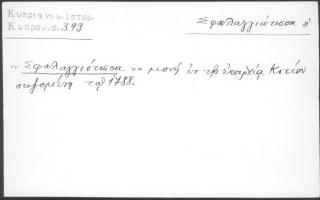 Κυπριανου. Ιστορ.
Κυπρου. σ. 393
Σφαλαγγιώτισσα ἡ
"Σφαλαγγιότισσα" μονή ἐν τῇ ἐπαρχίᾳ Κιτίου
σωζομένη τῷ 1788.